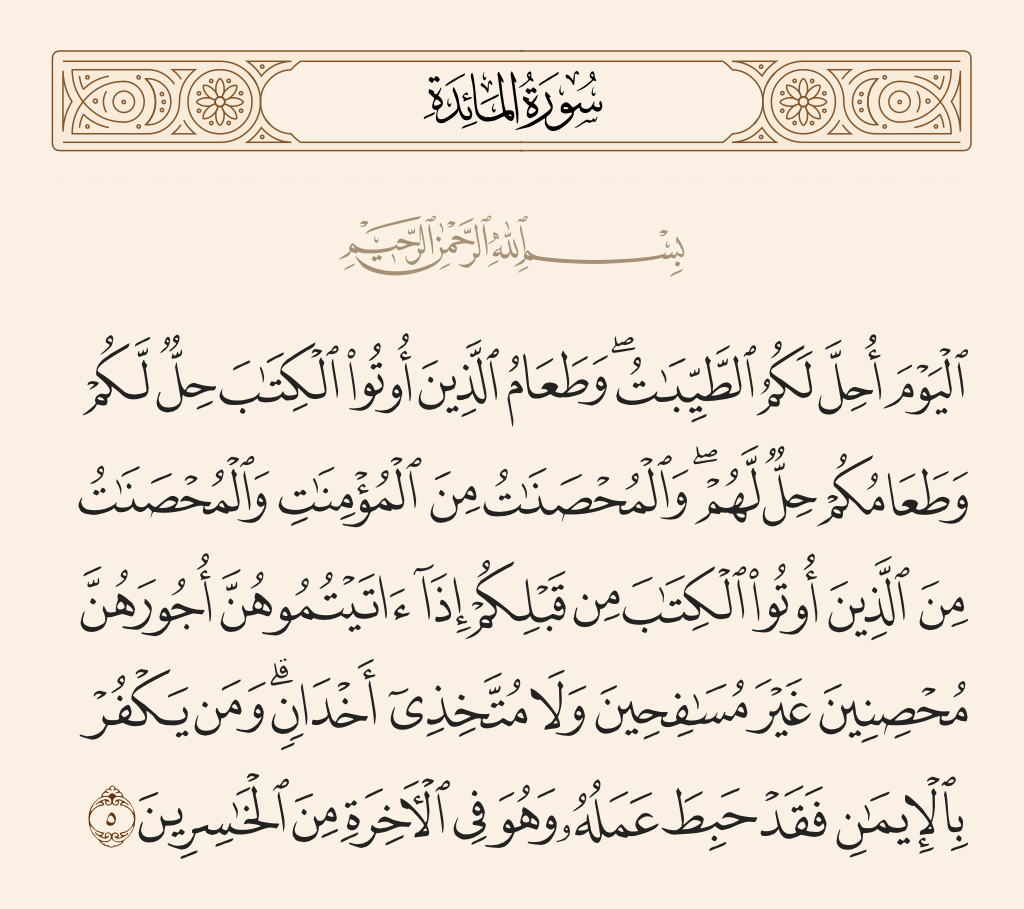 سُورَةُ المَائِدَةِ
بِسْمِ ٱللَّهِ ٱلرَّحْمَٰنِ ٱلرَّحِيمِ
ٱلْيَوْمَ أُحِلَّ لَكُمُ ٱلطَّيِّبَٰتُ ۖ وَطَعَامُ ٱلَّذِينَ أُوتُوا۟ ٱلْكِتَٰبَ حِلٌّ لَّكُمْ
وَطَعَامُكُمْ حِلٌّ لَّهُمْ ۖ وَٱلْمُحْصَنَٰتُ مِنَ ٱلْمُؤْمِنَٰتِ وَٱلْمُحْصَنَٰتُ
مِنَ ٱلَّذِينَ أُوتُوا۟ ٱلْكِتَٰبَ مِن قَبْلِكُمْ إِذَآ ءَاتَيْتُمُوهُنَّ أُجُورَهُنَّ
مُحْصِنِينَ غَيْرَ مُسَٰفِحِينَ وَلَا مُتَّخِذِىٓ أَخْدَانٍ ۗ وَمَن يَكْفُرْ
بِٱلْإِيمَٰنِ فَقَدْ حَبِطَ عَمَلُهُۥ وَهُوَ فِى ٱلْـَٔاخِرَةِ مِنَ ٱلْخَٰسِرِينَ ٥